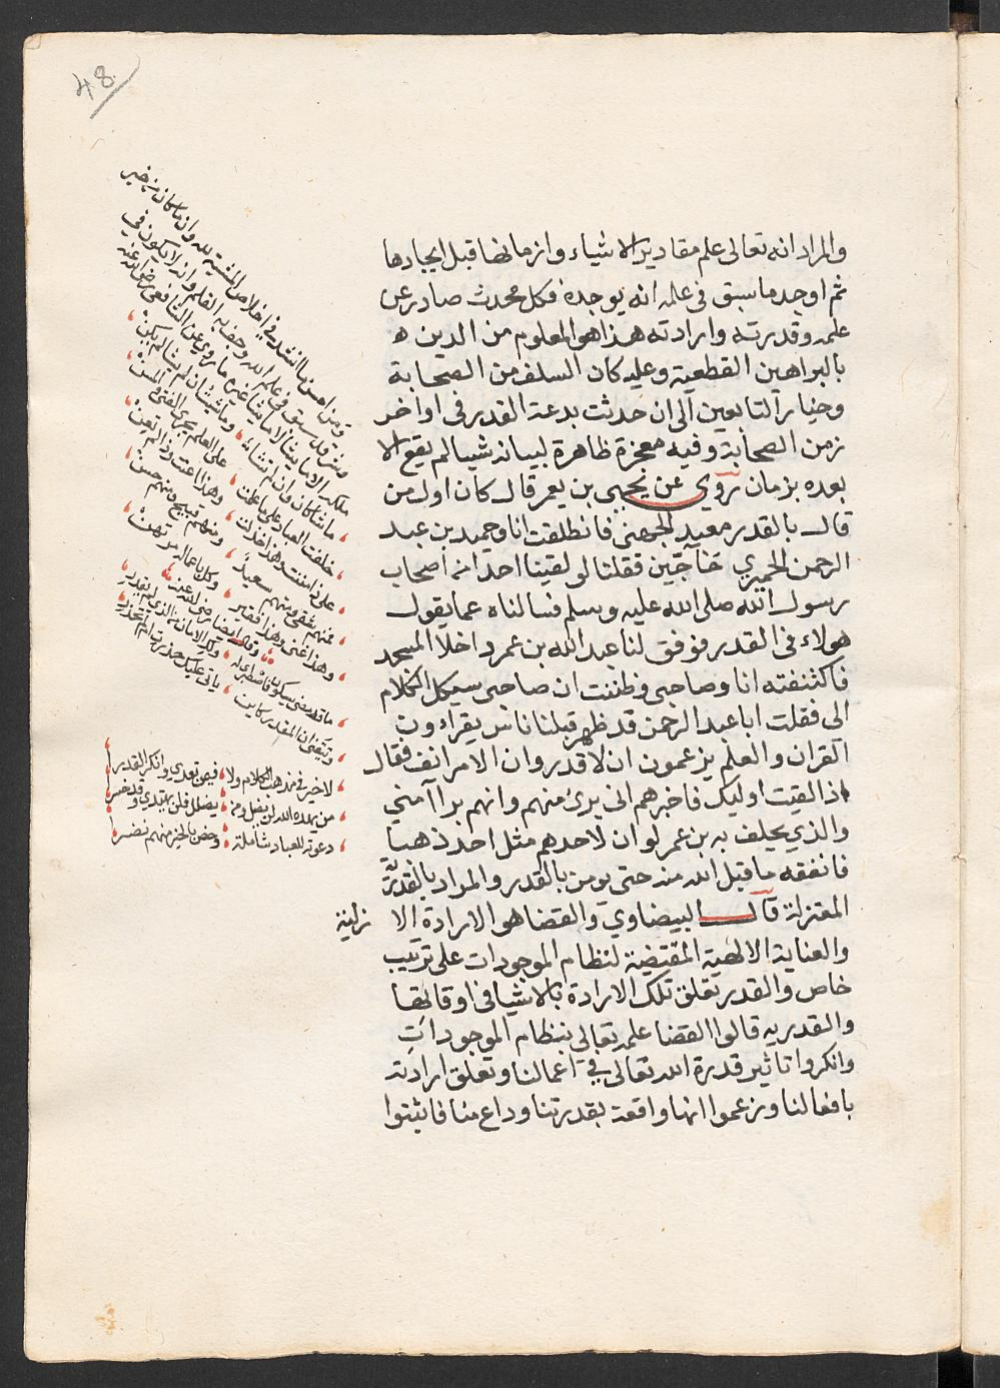 48
والمراد انه تعالى علم مقادير الاشياء وازمانها قبل ايجادها
ثم اوجد ما سبق في علمه انه يوجده فكل محدث صادر عن
علمه وقدرته وارادته هذا هو المعلوم من الدين ه
بالبراهين القطعية وعليه كان السلف من الصحابة
وخيار التابعين الى ان حدثت بدعة القدر في اواخر
زمن الصحابة وفيه معجزة ظاهرة لبيانه شيا لم يقع الا
بعده بزمان روي عن يحيى بن يعمر قال كان اول من
قال بالقدر معبد الجهني فانطلقت انا وحميد بن عبد
الرحمن الحميري حاجين فقلنا لو لقينا احدا من اصحاب
رسول الله صلى الله عليه وسلم فسالناه عما يقول
هولاء في القدر فوفق لنا عبد الله بن عمر داخلا المسجد
فاكتنفته انا وصاحبي وظننت ان صاحبي سيكل الكلام
الى فقلت ابا عبد الرحمن قد ظهر قبلنا ناس يقراءون
القران والعلم يزعمون ان لا قدر وان الامر انف فقال
اذا لقيت اوليك فاخبرهم انى برئ منهم وانهم برا آمني
والذي يحلف به بن عمر لو ان لاحدهم مثل احد ذهبا
فانفقه ما قبل الله منه حتى يومن بالقدر والمراد بالقدرية
المعتزلة قال البيضاوي والقضا هو الارادة الا زلية
والعناية الالهية المقتضية لنظام الموجودات على ترتيب
خاص والقدر تعلق تلك الارادة بالاشيا في اوقاتها
والقدريه قالوا القضا علمه تعالى بنظام الموجودات
وانكروا تاثير قدرة الله تعالى في اعمالنا وتعلق ارادته
بافعالنا وزعموا انها واقعة بقدرتنا وداع منا فاثبتوا
ما شئت كان وان لم تشا وما شئت ان لم تشا لم يكن
خلقت العباد على ما علمت على العلم يجري الفتى والمسن
على ذا مننت وهذا خذلت وهذا اعنت وذا لم تعن
فمنهم شقي ومنهم سعيد ومنهم قبيح ومنهم حسن
وهذا غني وهذا فقير وكل باعماله مرتهن
لا خير في مذهب الكلام ولا فيمن تعدى وانكر القدرا
من يهده الله لن يضل ومن يضلل فلن يهتدي وقد خسرا
دعوته للعباد شاملة وخص بالخير منهم نضرا